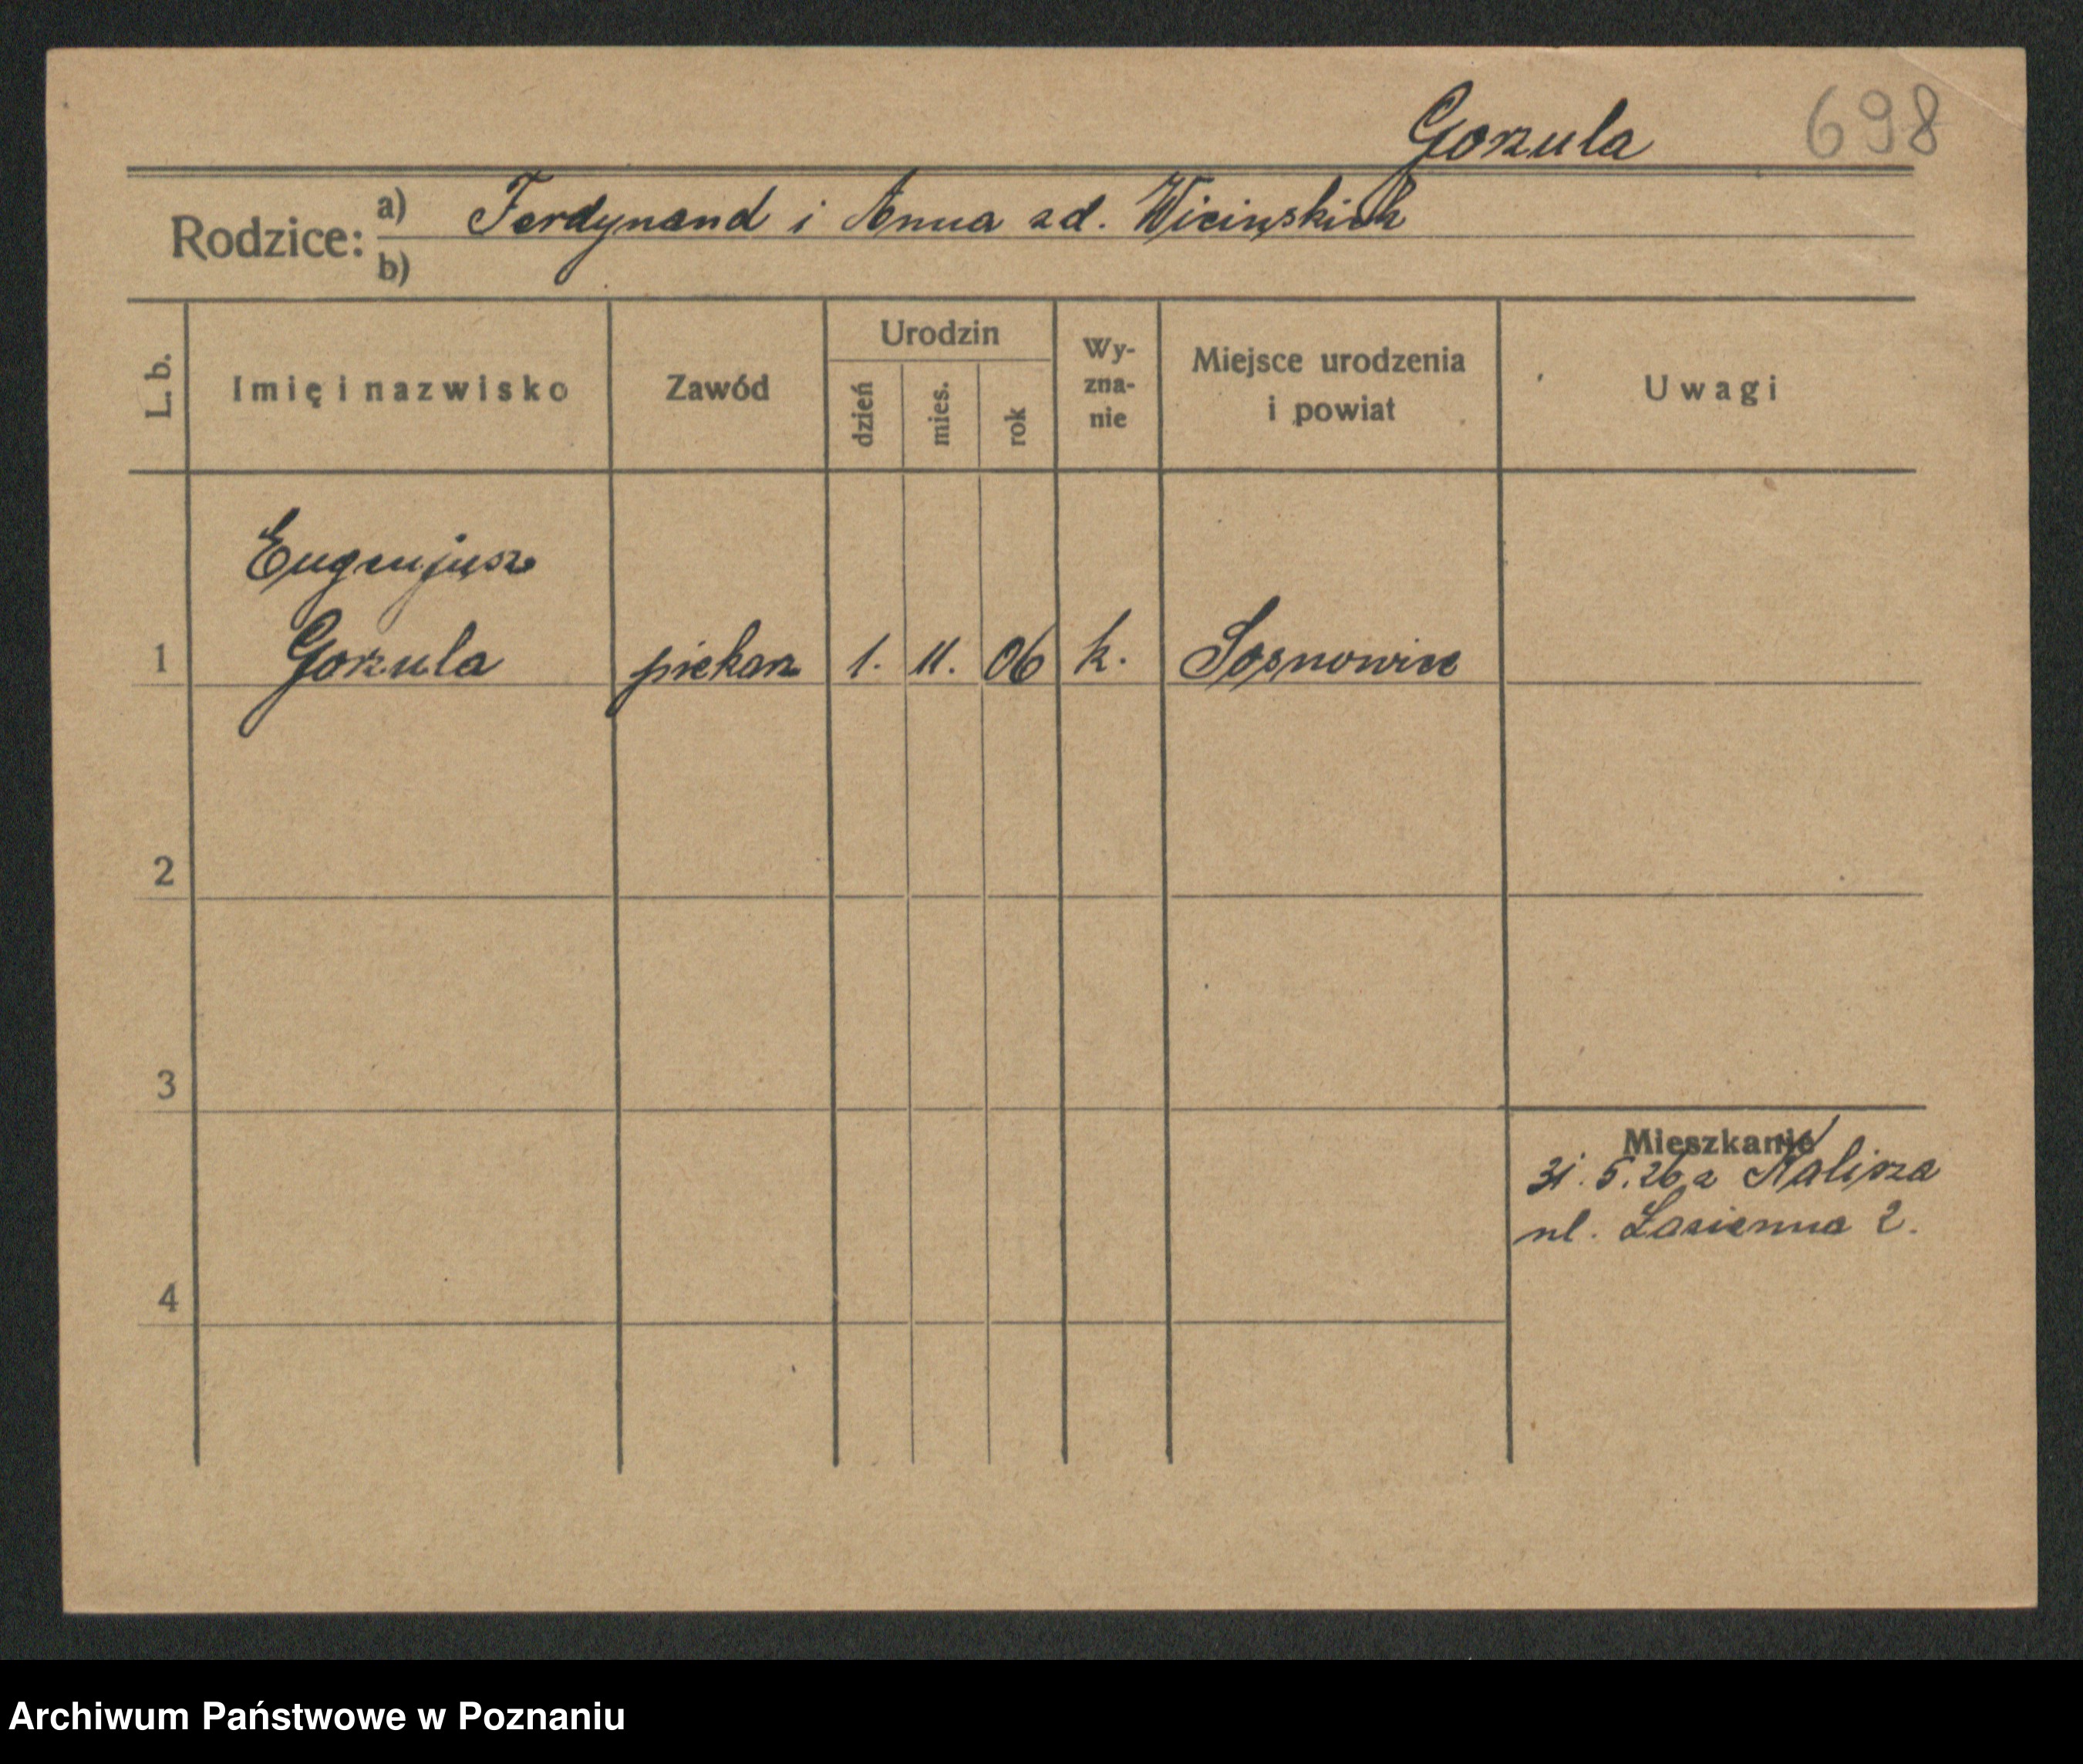 Gorzula 698
Rodzice: a) Ferdynand i Anna zd. Wicińskich
b)
L. b. Imię i nazwisko Zawód Urodzin dzień mies. rok Wy-zna-nie Miejsce urodzenia i powiat Uwagi
Eugenjusz
1 Gorzula piekarz 1. 11. 06 k. Sosnowice
2
3
Mieszkanie
31. 5. 26 z Kalisza
ul. Łazienna 2.
4
Archiwum Państwowe w Poznaniu